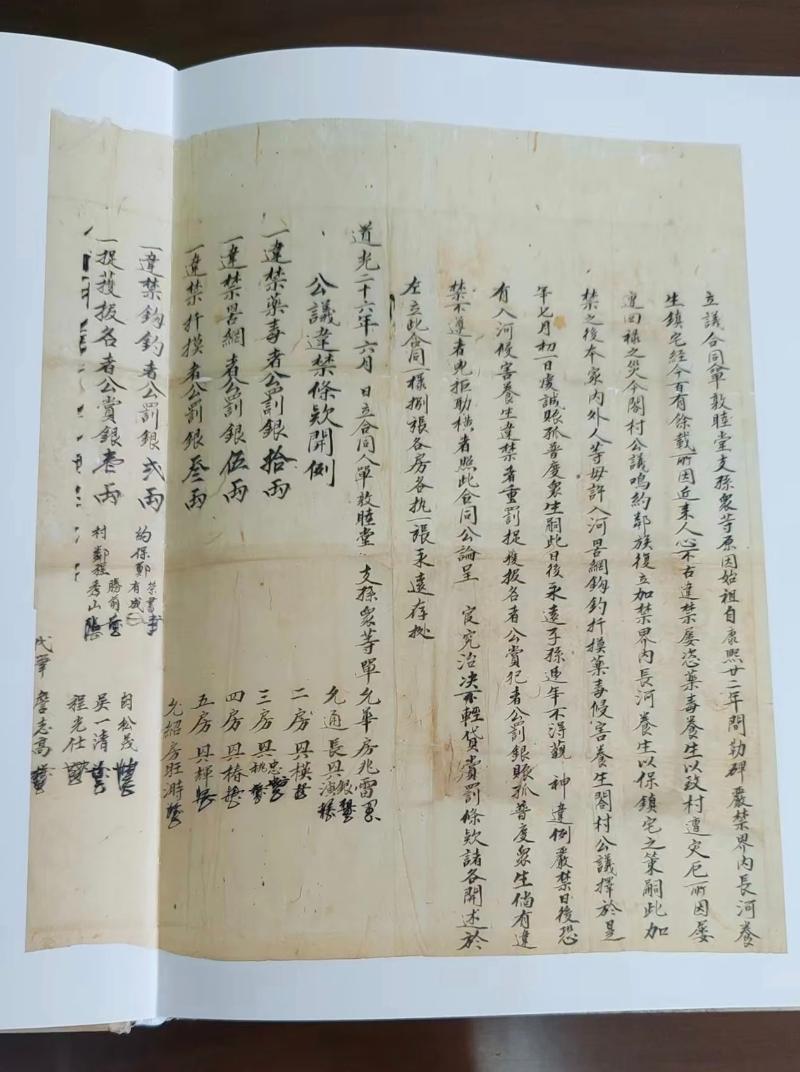 立議合同單敦睦堂支孫眾等原因始祖自康熙廿二年間勒碑嚴禁界內長河養
生鎮宅經今百有餘載所因近來人心不古違禁屢恣藥毒養生以致村遭災厄所因屡
遭回祿之災今閤村公議鳴約鄰族復立加禁界內長河養生以保鎮宅之策嗣此加
禁之後本家內外人等毋許入河罟網鈎釣扦摸藥毒侵害養生閤村公議擇於是
年七月初一日虔誠賑孤普度眾生嗣此日後永遠子孫遇年不得觀 神違例嚴禁日後恐
有入河侵害養生違禁者重罰捉獲扳名者公賞犯者公罰銀賑孤普度眾生倘有違
禁不遵者兇拒助橫者照此合同公論呈 官究治決不輕貸賞罰條欵諸各開述於
左立此合同一樣捌張各房各執一張永遠存據
道光二十六年六月 日立合同人單敦睦堂支孫眾等單
允華房兆雷
允通長興
銀
二房興模
三房興
忠
桃
四房興椿
五房興輝
允紹房旺
公議違禁條欵開例
一違禁藥毒者公罰銀拾兩
一違禁罟網者公罰銀伍兩
一違禁扦摸者公罰銀叁兩
一違禁鈎釣者公罰銀弍兩
一捉獲扳名者公賞銀壹兩
約保鄭
榮書
有成
勝前
村鄰程秀山
松茂
吳一清
程光仕
代筆 詹志高